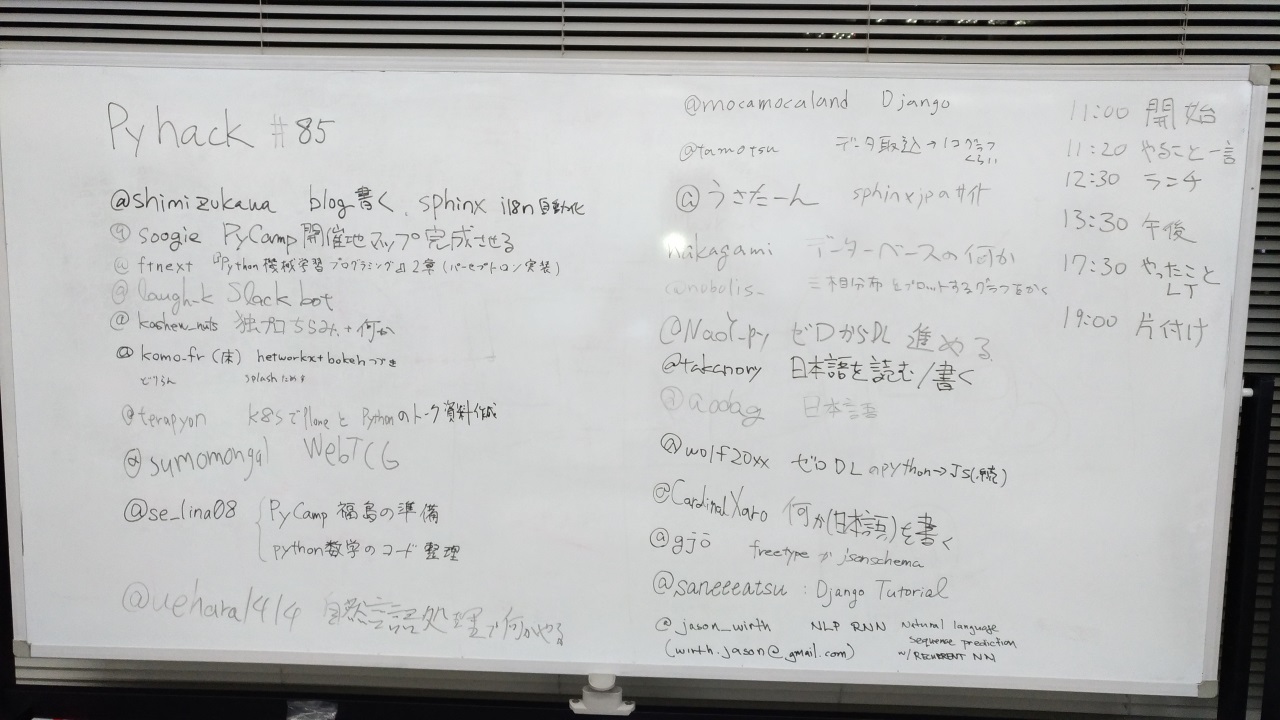 Pyhack #85
@shimizukawa blog書く、sphinx i18n自動化
@soogie PyCamp開催地マップ完成させる
@ftnext 『Python機械学習プログラミング』2章(パーセプトロン実装)
@laugh_k Slack bot
@kashew_nuts 独プロちらみ+何か
@komo_fr (床) networkx+bokehつづき
どりらん splashためす
@terapyon k8sでPloneとPythonのトーク資料作成
@sumomonga1 WebTCG
@se_lina08 PyCamp福島の準備
python数学のコード整理
@uehara1414 自然言語処理で何かやる
@mocamocaland Django
@tamotsu データ取込→1コグラフ
くらい
@うさたーん sphinxjpのサイト
nakagami データーベースの何か
canobolis_ 三相分布をプロットするグラフをかく
@NaoY_py ゼロからDL 進める
@takanory 日本語を読む/書く
@aodag 日本語
@wolf20xx ゼロDLのpython→JS(継続)
@CardinalXaro 何か(日本語)を書く
@gjō freetype か jsonschema
@saneeeatsu : Django Tutorial
@jason_wirth NLP RNN Natural language
sequence prediction
(wirth.jason@gmail.com) w/RECURRENT NN
11:00 開始
11:20 やること一言
12:30 ランチ
13:30 午後
17:30 やったこと
LT
19:00 片付け